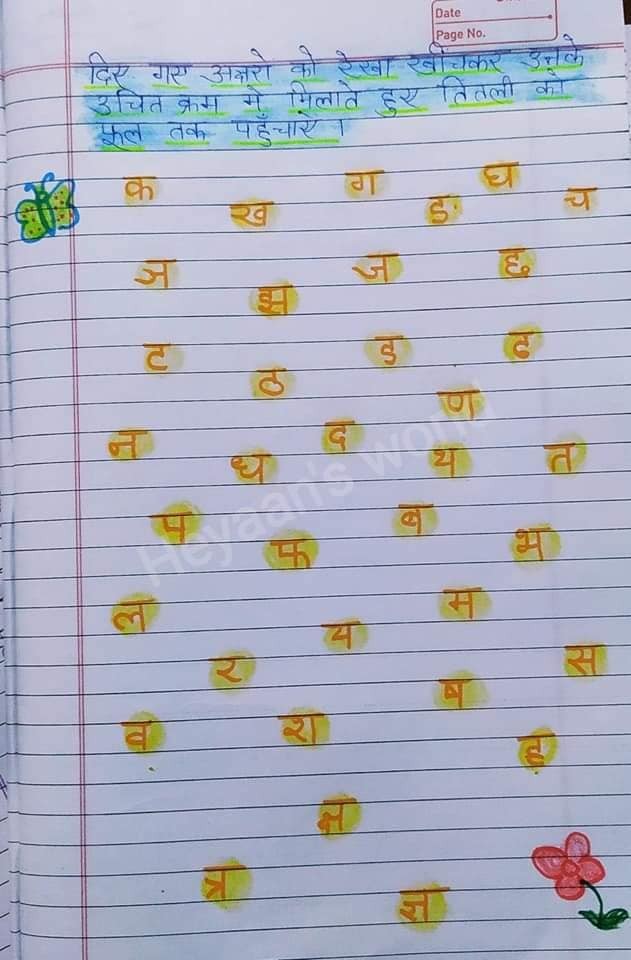 Date
Page No.
दिए गए अक्षरो को रेखा खींचकर उनके
उचित क्रम में मिलाते हुए तितली को
फूल तक पहुँचाऐ ।
क ख ग ङ घ च
ञ झ ज छ
ट ठ ड ढ
ण
न ध द थ त
प फ ब भ
ल र य म
व श ष स
ह
क्ष
त्र ज्ञ
Heyaan's world